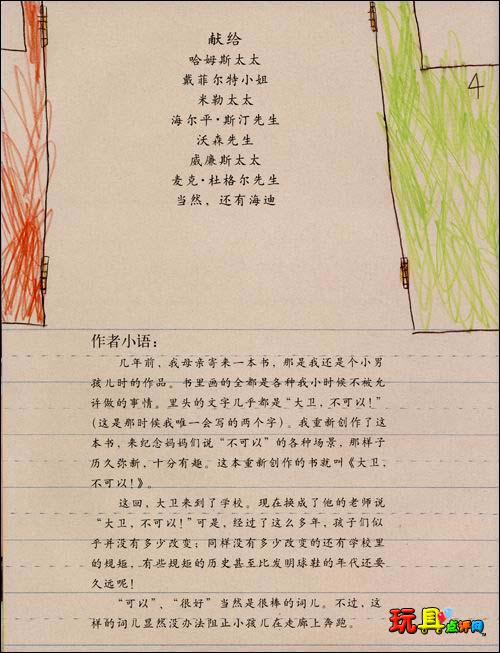 献给
哈姆斯太太
戴菲尔特小姐
米勒太太
海尔平·斯汀先生
沃森先生
威廉斯太太
麦克·杜格尔先生
当然，还有海迪
4
作者小语：
几年前，我母亲寄来一本书，那是我还是个小男
孩儿时的作品。书里画的全都是各种我小时候不被允
许做的事情。里头的文字几乎都是“大卫，不可以！”
（这是那时候我唯一会写的两个字）。我重新创作了这
本书，来纪念妈妈们说“不可以”的各种场景，那样子
历久弥新，十分有趣。这本重新创作的书就叫《大卫，
不可以！》。
这回，大卫来到了学校。现在换成了他的老师说
“大卫，不可以！”可是，经过了这么多年，孩子们似
乎并没有多少改变；同样没有多少改变的还有学校里
的规矩，有些规矩的历史甚至比发明球鞋的年代还要
久远呢！
“可以”、“很好”当然是很棒的词儿。不过，这
样的词儿显然没办法阻止小孩儿在走廊上奔跑。
玩具点评网